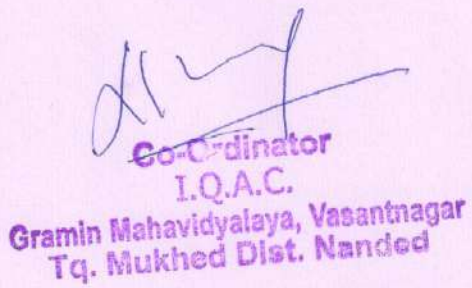 Co-Ordinator
I.Q.A.C.
Gramin Mahavidyalaya, Vasantnagar
Tq. Mukhed Dist. Nanded